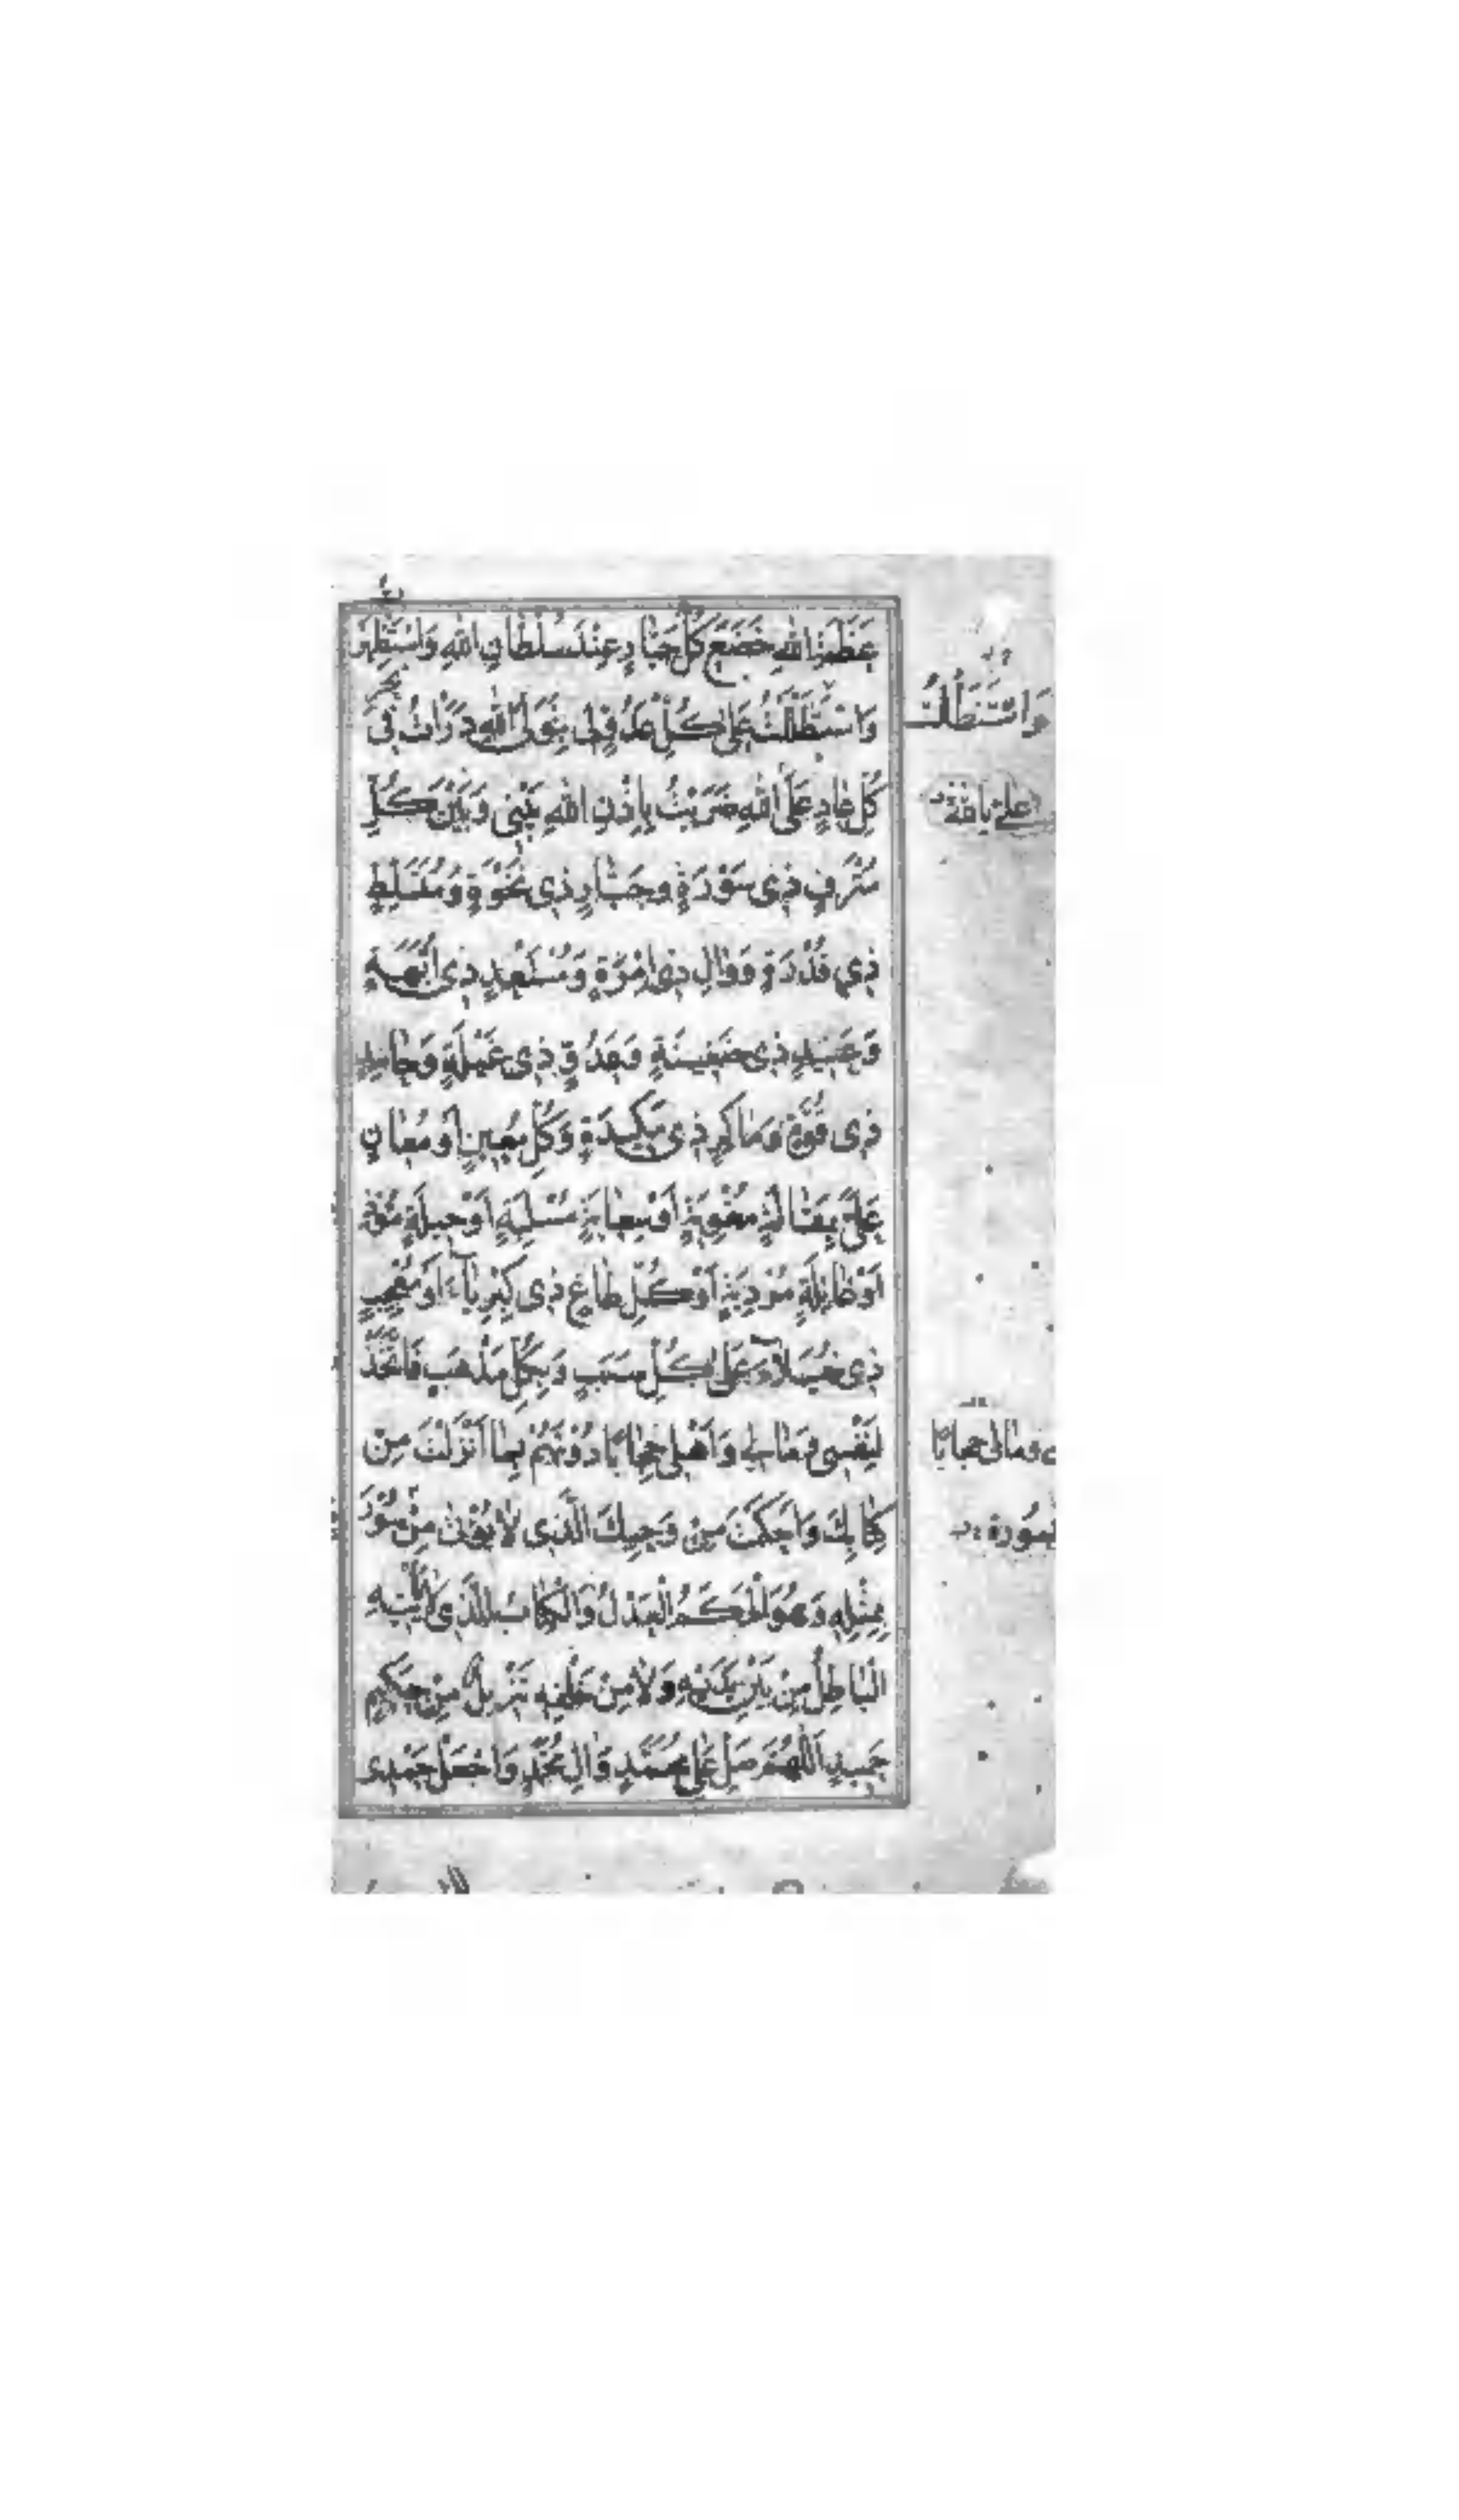 عَظَمَةِ اللهِ خَضَعَ كُلُّ جَبَّارٍ عِنْدَ سُلْطَانِ اللهِ وَاسْتَظْهَرْتُ
وَاسْتَظَلْتُ عَلَى كُلِّ عَدُوٍّ لِي بِتَوَلِّي اللهِ دَرَأْتُ فِي
كُلِّ عَادٍ عَلَيَّ اللهِ ضَرَبْتُ بِإِذْنِ اللهِ بَيْنِي وَبَيْنَ كُلِّ
مُتْرَفٍ ذِي سَوْرَةٍ وَجَبَّارٍ ذِي نَخْوَةٍ وَمُتَسَلِّطٍ
ذِي قُدْرَةٍ وَوَالٍ ذِي إِمْرَةٍ وَمُسْتَعِدٍّ ذِي أُبَّهَةٍ
وَعَنِيدٍ ذِي ضَغِينَةٍ وَعَدُوٍّ ذِي غِيلَةٍ وَحَاسِدٍ
ذِي قُوَّةٍ وَمَاكِرٍ ذِي مَكِيدَةٍ وَكُلِّ مُعِينٍ أَوْ مُعَانٍ
عَلَيَّ بِمَقَالَةٍ مُغْوِيَةٍ أَوْ سِعَايَةٍ مُسْلِبَةٍ أَوْ حِيلَةٍ مُؤْذِيَةٍ
أَوْ غَائِلَةٍ مُرْدِيَةٍ أَوْ كُلِّ طَاغٍ ذِي كِبْرِيَاءَ أَوْ مُعْجِبٍ
ذِي خُيَلَاءَ عَلَى كُلِّ سَبَبٍ وَبِكُلِّ مَذْهَبٍ فَاتَّخَذْتُ
لِنَفْسِي وَمَالِي وَأَهْلِي حِجَابًا دُونَهُمْ بِمَا أَنْزَلْتَ مِنْ
كِتَابِكَ وَأَحْكَمْتَ مِنْ وَحْيِكَ الَّذِي لَا يُؤْتَى مِنْ سُورَةٍ
بِمِثْلِهِ وَهُوَ الْحَكَمُ الْعَدْلُ وَالْكِتَابُ الَّذِي لَا يَأْتِيهِ
الْبَاطِلُ مِنْ بَيْنِ يَدَيْهِ وَلَا مِنْ خَلْفِهِ تَنْزِيلٌ مِنْ حَكِيمٍ
حَمِيدٍ اَللّهُمَّ صَلِّ عَلَى مُحَمَّدٍ وَآلِ مُحَمَّدٍ وَاجْعَلْ حَمْدِي
وَاسْتَظَلْتُ
بِاللهِ
وَمَالِي حِجَابًا
بِسُورَةٍ